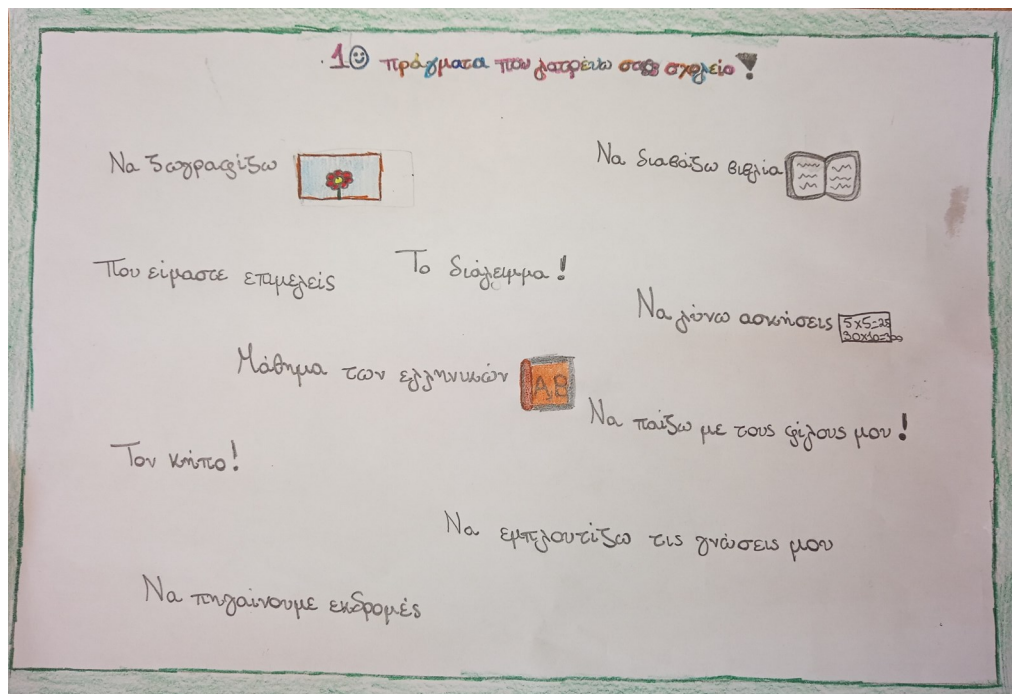 10 πράγματα που λατρεύω στο σχολείο!
Να ζωγραφίζω
Να διαβάζω βιβλία
Που είμαστε επιμελείς
Το διάλειμμα!
Να λύνω ασκήσεις
5x5=25
30x10=300
Μάθημα των ελληνικών
ΑΒ
Να παίζω με τους φίλους μου!
Τον κήπο!
Να εμπλουτίζω τις γνώσεις μου
Να πηγαίνουμε εκδρομές